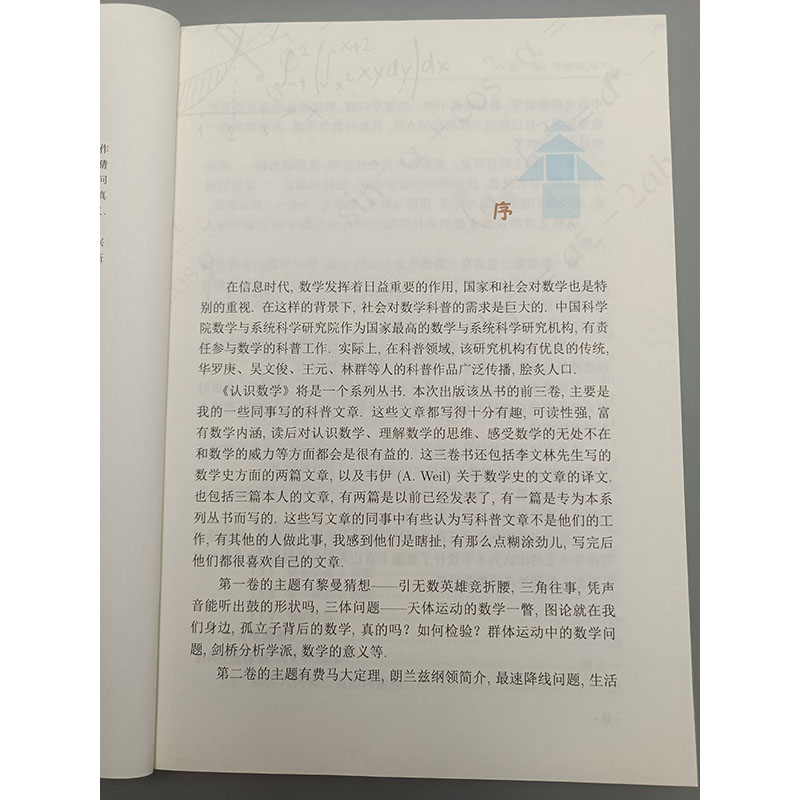 序
在信息时代, 数学发挥着日益重要的作用, 国家和社会对数学也是特
别的重视. 在这样的背景下, 社会对数学科普的需求是巨大的. 中国科学
院数学与系统科学研究院作为国家最高的数学与系统科学研究机构, 有责
任参与数学的科普工作. 实际上, 在科普领域, 该研究机构有优良的传统,
华罗庚、吴文俊、王元、林群等人的科普作品广泛传播, 脍炙人口.
《认识数学》将是一个系列丛书. 本次出版该丛书的前三卷, 主要是
我的一些同事写的科普文章. 这些文章都写得十分有趣, 可读性强, 富
有数学内涵, 读后对认识数学、理解数学的思维、感受数学的无处不在
和数学的威力等方面都会是很有益的. 这三卷书还包括李文林先生写的
数学史方面的两篇文章, 以及韦伊 (A. Weil) 关于数学史的文章的译文.
也包括三篇本人的文章, 有两篇是以前已经发表了, 有一篇是专为本系
列丛书而写的. 这些写文章的同事中有些认为写科普文章不是他们的工
作, 有其他的人做此事, 我感到他们是瞎扯, 有那么点糊涂劲儿, 写完后
他们都很喜欢自己的文章.
第一卷的主题有黎曼猜想——引无数英雄竞折腰, 三角往事, 凭声
音能听出鼓的形状吗, 三体问题——天体运动的数学一瞥, 图论就在我
们身边, 孤立子背后的数学, 真的吗? 如何检验? 群体运动中的数学问
题, 剑桥分析学派, 数学的意义等.
第二卷的主题有费马大定理, 朗兰兹纲领简介, 最速降线问题, 生活